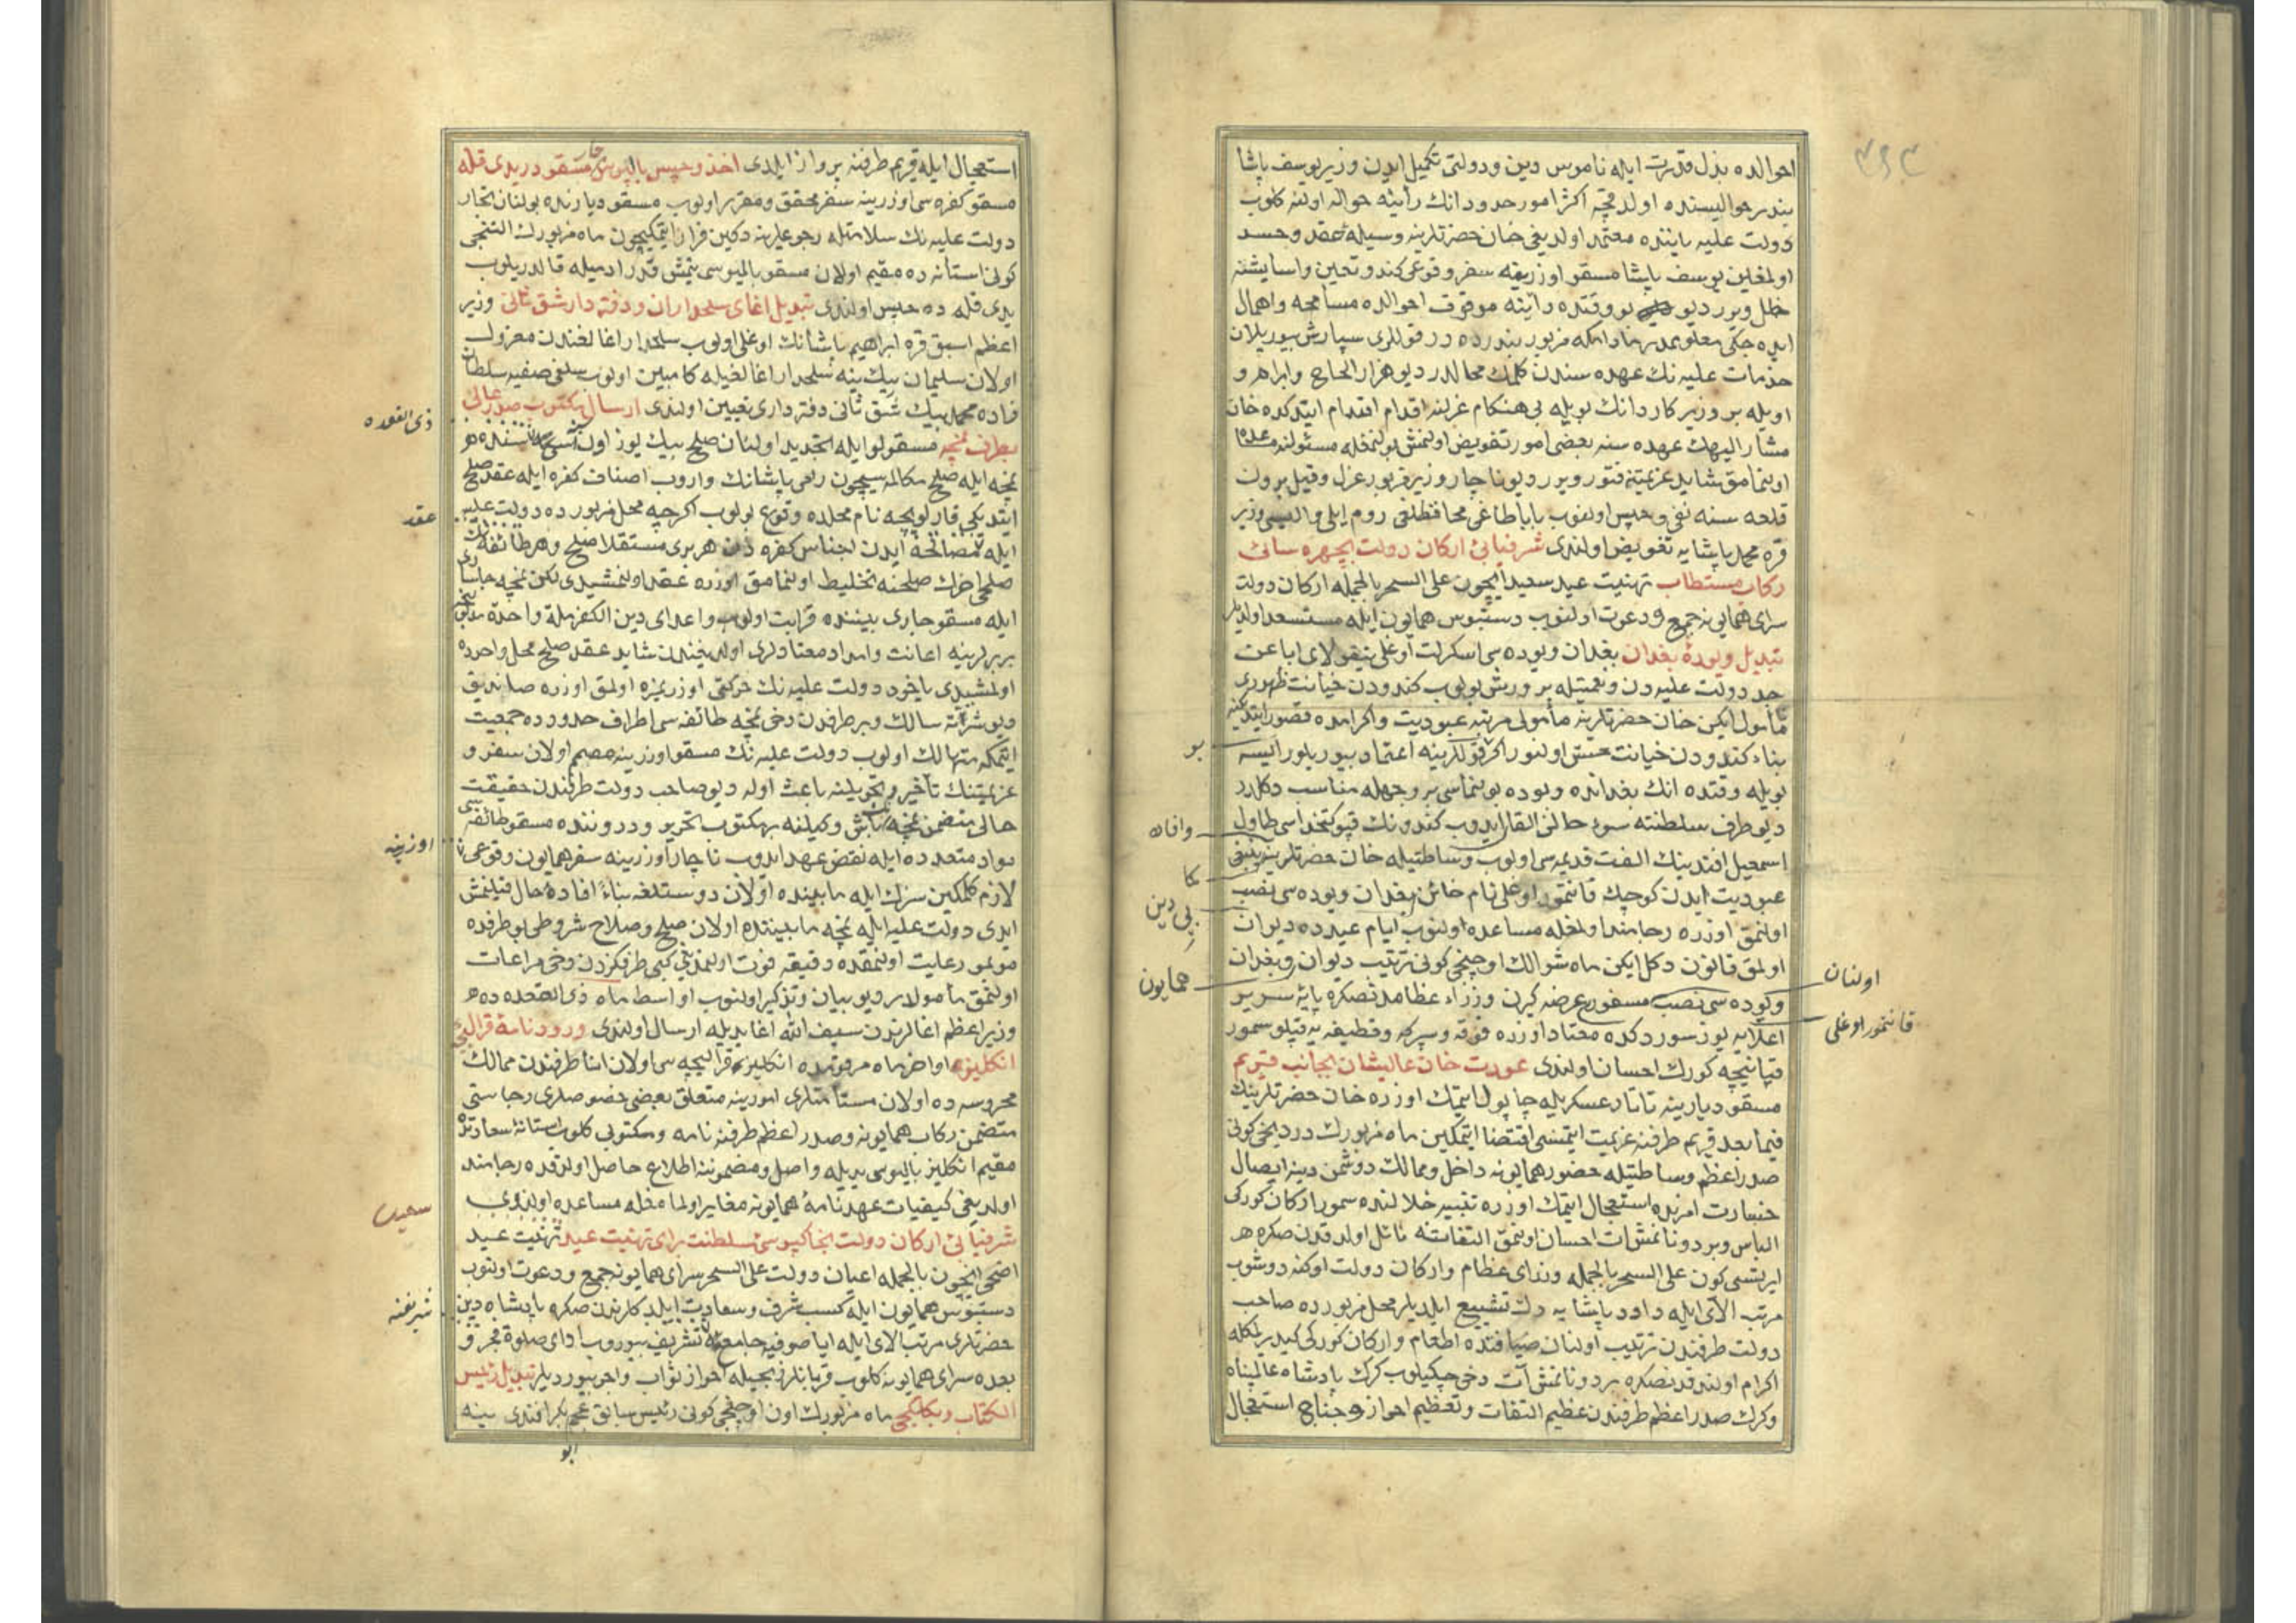 احوالده بذل قدرت ایله ناموس دین و دولتی تکمیل ایدن وزیر یوسف پاشا
بندر حوالیسنده اولدقچه اکثر امور حدود انك رأینه حواله اولنه کلوب
دولت علیه یاننده معتمد اولدیغی خان حضرتلرینه وسیلهٔ حقد و حسد
اولمغلین یوسف پاشا مسقو اوزرینه سفر وقوعی کندو تعین و اسایشنه
خلل ویرر دیو بو وقتده رأینه موقوف احوالده مسامحه و اهمال
ایده جکی معلومدر مادامکه مزبور بندرده در قوللری سپارش بیوریلان
خدمات علیه نك عهده سندن کلمك محالدر دیو هزار الحاح و ابرام و
اویله بر وزیر کاردانك بویله بی هنکام عزلنه اقدام اقتدام ایتدکده خان
مشار الیهك عهده سنه بعضی امور تفویض اولنمش بولنمغله مسئولنه مساعده
اولنمامق شاید عزیمتنه فتور ویرر دیو ناچار وزیر مزبور عزل و قیل برون
قلعه سنه نفی و حبس اولنوب باباطاغی محافظلغی روم ایلی والیسی وزیر
قره محمد پاشایه تفویض اولندی شرفیابیٔ ارکان دولت بچهره سائی
رکاب مستطاب تهنیت عید سعید ایچون علی السحر بالجمله ارکان دولت
سرای همایونه جمع و دعوت اولنوب دستبوس همایون ایله مستسعد اولدیلر
تبدیل ویودهٔ بغدان بغدان ویوده سی اسکرلت اوغلی نیقولای ابا عن
جد دولت علیه دن و نعمتیله پرورش بولوب کندودن خیانت ظهوری
نامأمول ایکن خان حضرتلرینه مأمولی مرتبه عبودیت و اکرامده قصور ایتدیکنه
بناء کندودن خیانت حس اولنور اکر قوللرینه اعتماد بیوریلور ایسه
بویله وقتده انك بغدانده ویوده بولنماسی بر وجهله مناسب دکلدر
دیو طرف سلطنته سوء حالنی القا ایدوب کندونك قپو کتخداسی طاول
اسمعیل افندینك الفت قدیمه سی اولوب وساطتیله خان حضرتلرینه
عبودیت ایدن کوچك قانتمور اوغلی نام خائن بغدان ویوده سی نصب
اولنمق اوزره رجامند اولمغله مساعده اولنوب ایام عیدده دیوان
اولمق قانون دکل ایکن ماه شوالك اوچنجی کونی ترتیب دیوان و بغدان
ویوده سی نصب مسفور عرضه کیرن وزراء عظامدنصکره پایهٔ سریر
اعلایه یوز سوردکده معتاد اوزره قوقه و سپرکه و قطیفه یه قپلو سمور
قپانیچه کورك احسان اولندی عودت خان عالیشان بجانب قریم
مسقو دیارینه تاتار عسکریله چاپول ایتمك اوزره خان حضرتلرینك
فیما بعد قریم طرفنه عزیمت ایتمسی اقتضا ایتمکین ماه مزبورك دردنجی کونی
صدر اعظم وساطتیله حضور همایونه داخل و ممالك دوشمن دینه ایصال
خسارت امرنده استعجال ایتمك اوزره تنبیه خلالنده سمور ارکان کورکی
الباس و بر دونانمش ات احسان اولنمق التفاتنه نائل اولدقدن صکره هر
ایرتسی کون علی السحر بالجمله وزرای عظام و ارکان دولت اوکنه دوشوب
مرتب الای ایله داود پاشایه دك تشییع ایلدیلر محل مزبورده صاحب
دولت طرفندن ترتیب اولنان ضیافتده اطعام و ارکان کورکی کیدیرلمکله
اکرام اولندقدنصکره بر دونانمش آت دخی چکیلوب کرك پادشاه عالمپناه
و کرك صدر اعظم طرفندن عظیم التفات و تعظیم احراز و جناح استعجال
بو
وافاده
بی دین
همایون
اولنان
قانتمور اوغلی
استعجال ایله قریم طرفنه پرواز ایلدی اخذ و حبس بالیوس مسقو در یدی قله
مسقو کفره سی اوزرینه سفر محقق و مقرر اولوب مسقو دیارنده بولنان تجار
دولت علیه نك سلامتله رجوعلرینه دکین قرار ایتمکیچون ماه مزبورك التنجی
کونی استانه ده مقیم اولان مسقو بالیوسی یتمش قدر ادمیله قالدریلوب
یدی قله ده حبس اولندی تبدیل اغای سلحداران و دفتردار شق ثانی وزیر
اعظم اسبق قره ابراهیم پاشانك اوغلی اولوب سلحدار اغالغندن معزول
اولان سلیمان بیك ینه سلحدار اغالغیله کامبین اولوب سلفی صفیه سلطان
زاده محمد بیك شق ثانی دفترداری تعیین اولندی ارسال مکتوب صدر عالی
بطرف نمچه مسقولو ایله تجدید اولنان صلح بیك یوز اون سنه سنده
نمچه ایله صلح مکالمه سیچون رامی پاشانك واروب اصناف کفره ایله عقد صلح
ایتدیکی قارلویچه نام محلده وقوع بولوب اکرچه محل مزبورده دولت علیه
ایله مصالحه ایدن اجناس کفره دن هر بری مستقلا صلح و هر طائفه نك
صلحی اخرك صلحنه تخلیط اولنمامق اوزره عقد اولنمشیدی لکن نمچه جاساری
ایله مسقو چاری بیننده قرابت اولوب و اعدای دین الکفر ملة واحدة
بربرلرینه اعانت و امداد معتادلری اولدیغندن شاید عقد صلح محل واحدده
اولمشیدی یاخود دولت علیه نك حرکتی اوزریمزه اولمق اوزره صانوب
سالك و بر طرفدن دخی نمچه طائفه سی اطراف حدودده جمعیت
ایتمکه متهالك اولوب دولت علیه نك مسقو اوزرینه مصمم اولان سفر و
عزیمتنك تأخیر و تحویلنه باعث اوله دیو صاحب دولت طرفندن حقیقت
حالی متضمن نمچه باش وکیلنه بر مکتوب تحریر و دروننده مسقو طائفه سی
مواد متعدده ایله نقض عهد ایدوب ناچار اوزرینه سفر همایون وقوعی
لازم کلمکین سزك ایله مابینده اولان دوستلغه بناءً افادهٔ حال قیلنمش
ایدی دولت علیه ایله نمچه مابیننده اولان صلح و صلاح شروطی بو طرفده
مو بمو رعایت اولنمقده دقیقه فوت اولنمدیغی کبی طرفکزدن دخی مراعات
اولنمق مأمولدر دیو بیان و تذکیر اولنوب اواسط ماه ذی القعده ده
وزیر اعظم اغالرندن سیف الله اغا یدیله ارسال اولندی ورود نامهٔ قرالیچهٔ
انکلیز اواخر ماه مرقومده انکلیز قرالیچه سی اولان اننا طرفندن ممالك
محروسه ده اولان مستأمنلری امورینه متعلق بعضی خصوصلری رجاسنی
متضمن رکاب همایونه و صدر اعظم طرفنه نامه و مکتوبی کلوب استانهٔ سعادتده
مقیم انکلیز بالیوسی یدیله واصل و مضموننه اطلاع حاصل اولدقده رجامند
اولدیغی کیفیات عهدنامهٔ همایونه مغایر اولمامغله مساعده اولندی
شرفیابیٔ ارکان دولت بخاکپوسیٔ سلطنت برای تهنیت عید تهنیت عید
اضحی ایچون بالجمله اعیان دولت علی السحر سرای همایونه جمع و دعوت اولنوب
دستبوس همایون ایله کسب شرف و سعادت ایلدکلرندن صکره پادشاه دین
حضرتلری مرتب الای ایله ایاصوفیه جامعنه تشریف بیوروب ادای صلوة فجر و
بعده سرای همایونه کلوب قربانلر ذبحیله احراز ثواب و اجر بیوردیلر تبدیل رئیس
الکتاب و بکلکچی ماه مزبورك اون اوچنجی کونی رئیس سابق عجم بکر افندی ینه
ذی القعده
عقد
اوزرینه
سعید
شریفنه
ابو